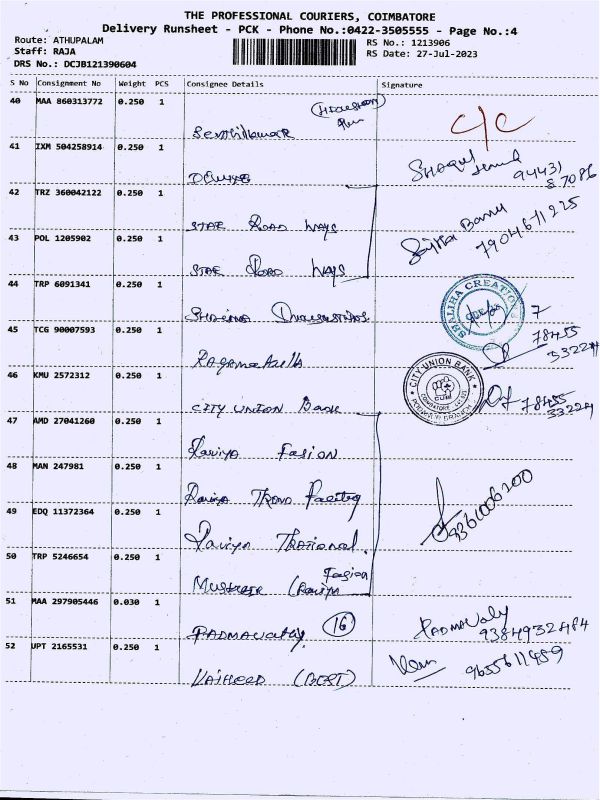 THE PROFESSIONAL COURIERS, COIMBATORE
Delivery Runsheet - PCK - Phone No.:0422-3505555 - Page No.:4
Route: ATHUPALAM
Staff: RAJA
DRS No.: DCJB121390604
RS No.: 1213906
RS Date: 27-Jul-2023
S No Consignment No Weight PCS Consignee Details Signature
40 MAA 860313772 0.250 1 Senthilkumar c/c
41 IXM 504258914 0.250 1 94431 87086
42 TRZ 360042122 0.250 1 STAR ROAD WAYS Banu 7904671225
43 POL 1205902 0.250 1 STAR ROAD WAYS
44 TRP 6091341 0.250 1 SHALIHA CREATION
45 TCG 90007593 0.250 1 78455 33224
46 KMU 2572312 0.250 1 CITY UNION BANK CITY UNION BANK CUB COIMBATORE 78455 33224
47 AMD 27041260 0.250 1 Raviya Fasion
48 MAN 247981 0.250 1 Raviya 9361006200
49 EDQ 11372364 0.250 1 Raviya
50 TRP 5246654 0.250 1 (Raviya Fasion
51 MAA 297905446 0.030 1 PADMAVATHY 16 PADMAVATHY 9384932484
52 UPT 2165531 0.250 1 VAIHEED 9655611489